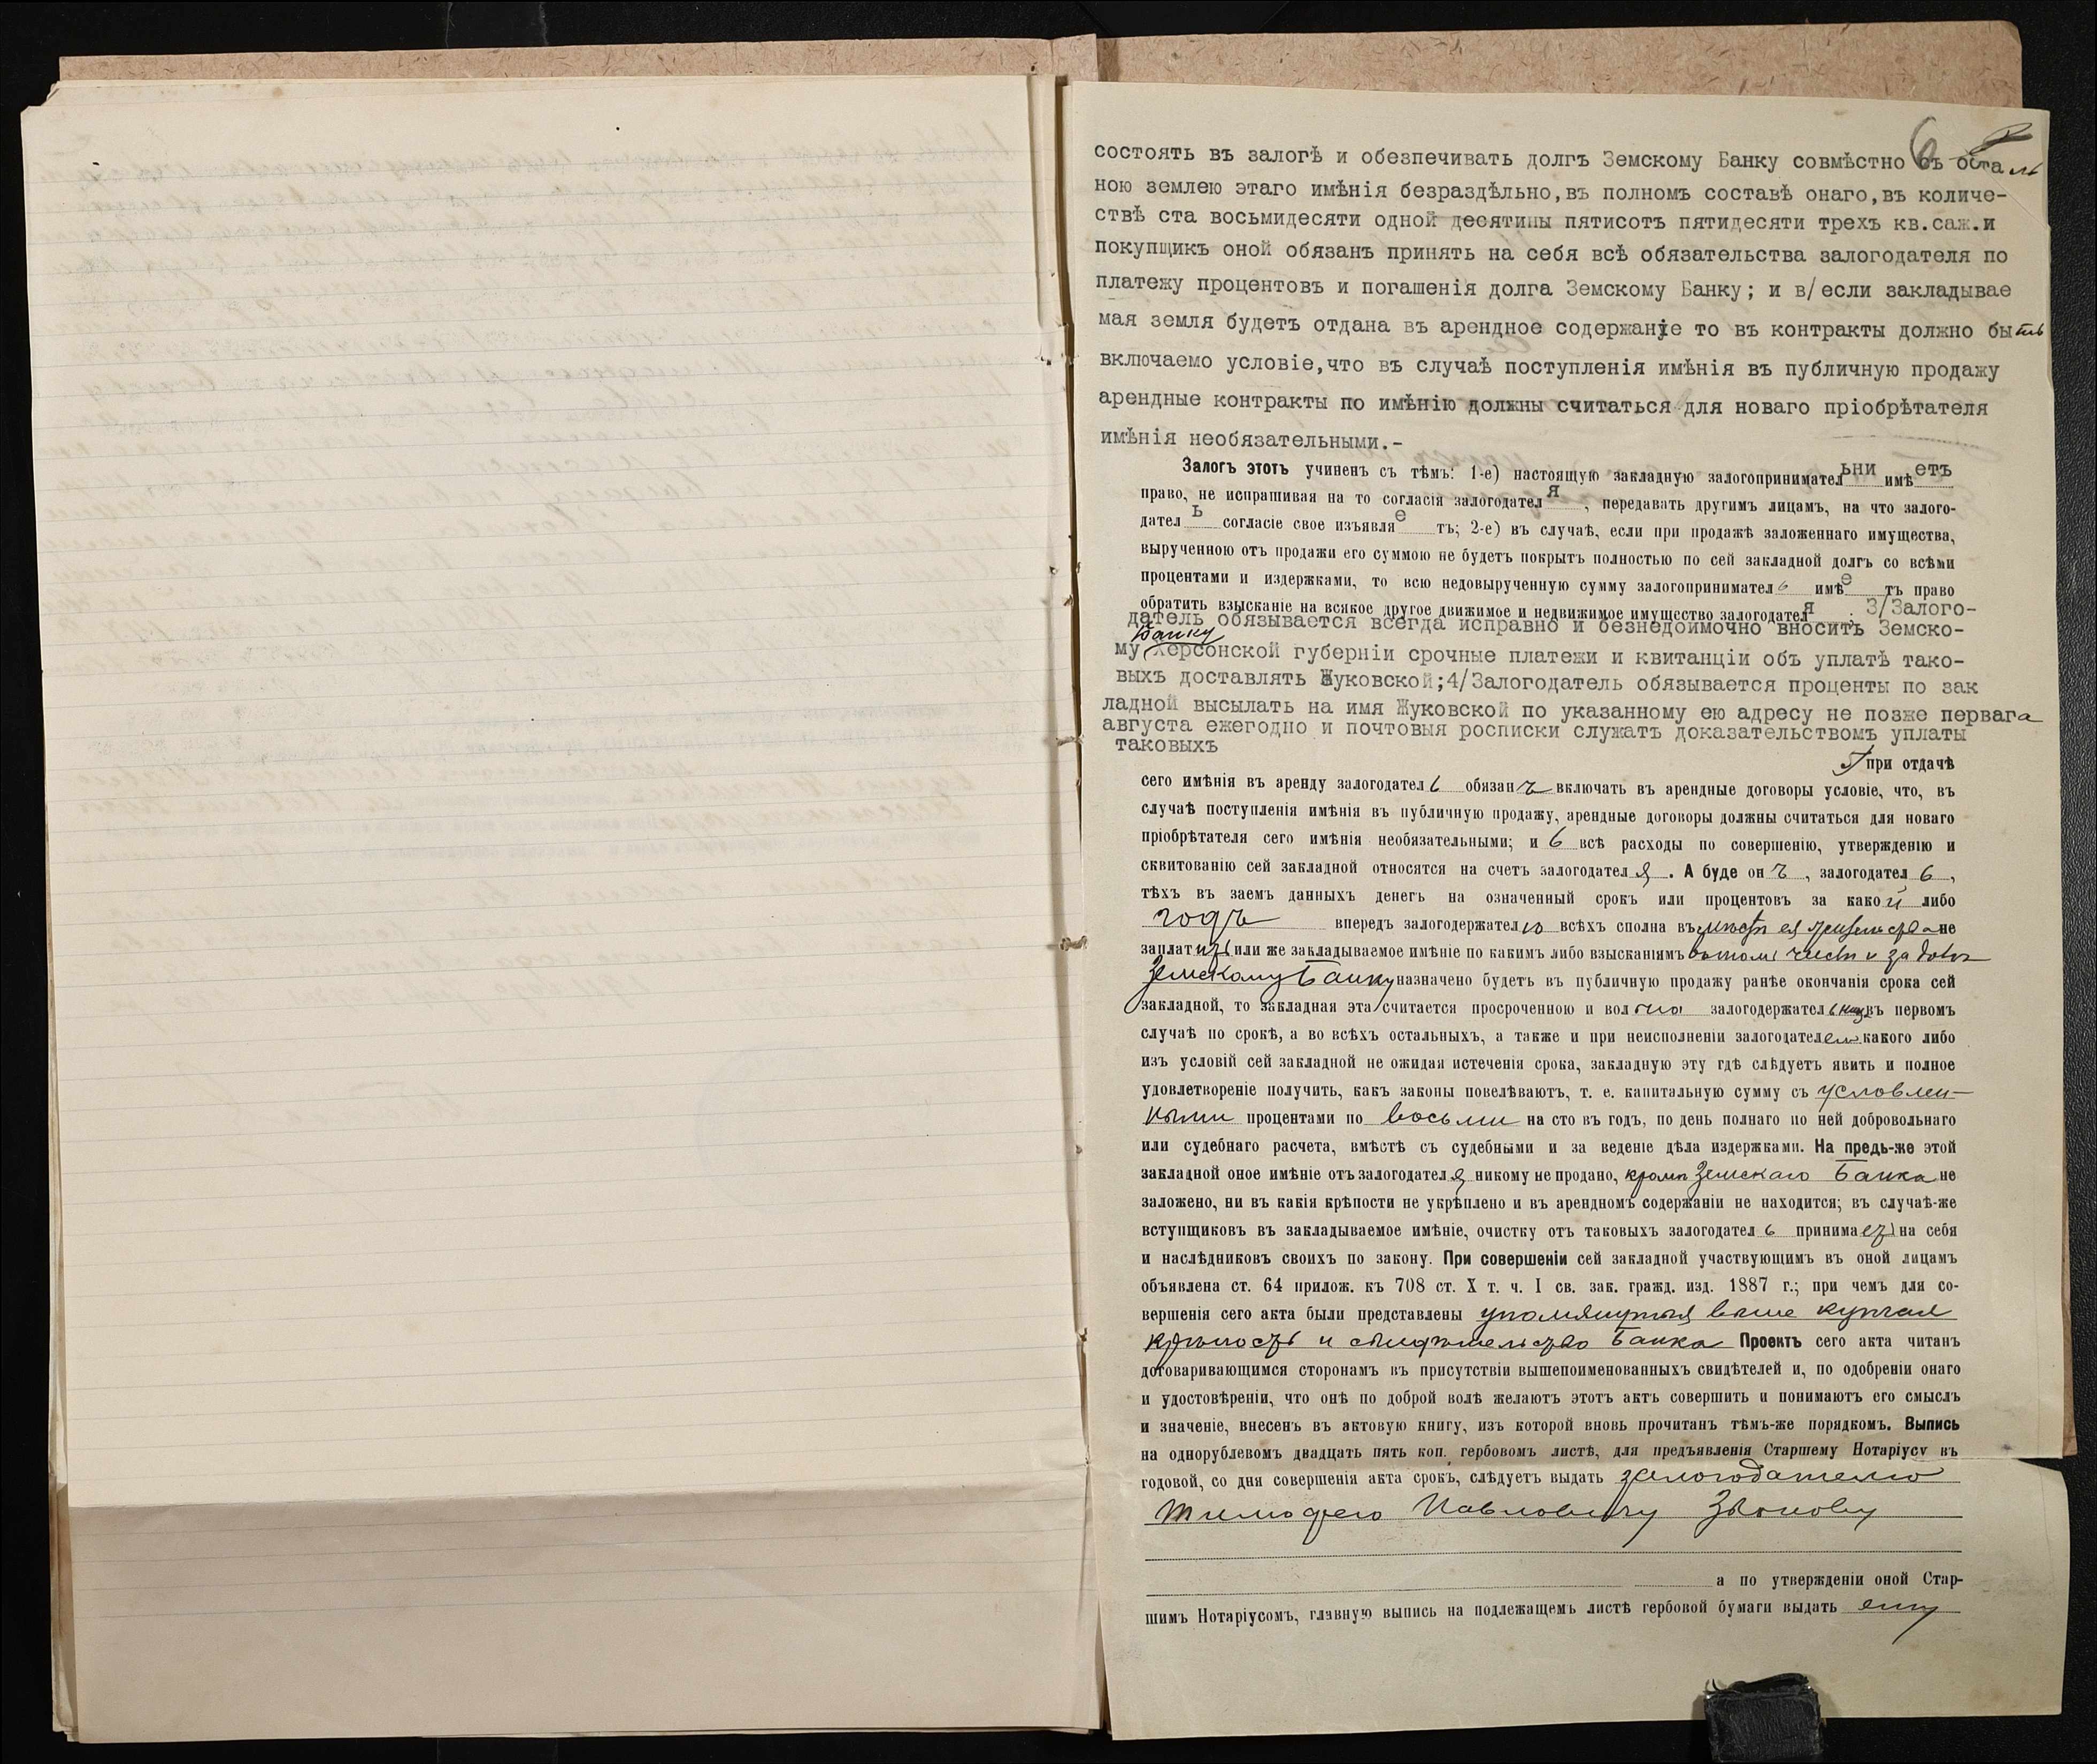 6
состоять въ залогѣ и обезпечивать долгъ Земскому Банку совмѣстно съ осталь
ною землею этаго имѣнія безраздѣльно,въ полномъ составѣ онаго,въ количе-
ствѣ ста восьмидесяти одной десятины пятисотъ пятидесяти трехъ кв.саж.и
покупщикъ оной обязанъ принять на себя всѣ обязательства залогодателя по
платежу процентовъ и погашенія долга Земскому Банку; и в/если закладывае
мая земля будетъ отдана въ арендное содержаніе то въ контракты должно быть
включаемо условіе,что въ случаѣ поступленія имѣнія въ публичную продажу
арендные контракты по имѣнію должны считаться для новаго пріобрѣтателя
имѣнія необязательными.-
Залогъ этотъ учиненъ съ тѣмъ: 1-е) настоящую закладную залогопринимательни имѣетъ
право, не испрашивая на то согласія залогодателя, передавать другимъ лицамъ, на что залого-
датель согласіе свое изъявляетъ; 2-е) въ случаѣ, если при продажѣ заложеннаго имущества,
вырученною отъ продажи его суммою не будетъ покрытъ полностью по сей закладной долгъ со всѣми
процентами и издержками, то всю недовырученную сумму залогоприниматель имѣетъ право
обратить взысканіе на всякое другое движимое и недвижимое имущество залогодателя. 3/Залого-
датель обязывается всегда исправно и безнедоимочно вносить Земско-
Банку
му Херсонской губерніи срочные платежи и квитанціи объ уплатѣ тако-
выхъ доставлять Жуковской;4/Залогодатель обязывается проценты по зак
ладной высылать на имя Жуковской по указанному ею адресу не позже перваго
августа ежегодно и почтовыя росписки служатъ доказательствомъ уплаты
таковыхъ
5) при отдачѣ
сего имѣнія въ аренду залогодатель обязанъ включать въ арендные договоры условіе, что, въ
случаѣ поступленія имѣнія въ публичную продажу, арендные договоры должны считаться для новаго
пріобрѣтателя сего имѣнія необязательными; и 6 всѣ расходы по совершенію, утвержденію и
сквитованію сей закладной относятся на счетъ залогодателя. А буде онъ, залогодатель,
тѣхъ въ заемъ данныхъ денегъ на означенный срокъ или процентовъ за какой либо
годъ впередъ залогодержателю всѣхъ сполна въ мѣстѣ ея жительства не
заплатитъ или же закладываемое имѣніе по какимъ либо взысканіямъ въ томъ числѣ и за долгъ
Земскому Банку назначено будетъ въ публичную продажу ранѣе окончанія срока сей
закладной, то закладная эта считается просроченною и вольна залогодержательница въ первомъ
случаѣ по срокѣ, а во всѣхъ остальныхъ, а также и при неисполненіи залогодателемъ какого либо
изъ условій сей закладной не ожидая истеченія срока, закладную эту гдѣ слѣдуетъ явить и полное
удовлетвореніе получить, какъ законы повелѣваютъ, т. е. капитальную сумму съ условлен-
ными процентами по восьми на сто въ годъ, по день полнаго по ней добровольнаго
или судебнаго расчета, вмѣстѣ съ судебными и за веденіе дѣла издержками. На предь-же этой
закладной оное имѣніе отъ залогодателя никому не продано, кромѣ Земскаго Банка не
заложено, ни въ какія крѣпости не укрѣплено и въ арендномъ содержаніи не находится; въ случаѣ-же
вступщиковъ въ закладываемое имѣніе, очистку отъ таковыхъ залогодатель принимаетъ на себя
и наслѣдниковъ своихъ по закону. При совершеніи сей закладной участвующимъ въ оной лицамъ
объявлена ст. 64 прилож. къ 708 ст. X т. ч. I св. зак. гражд. изд. 1887 г.; при чемъ для со-
вершенія сего акта были представлены упомянутыя выше купчая
крѣпость и свидѣтельство Банка Проектъ сего акта читанъ
договаривающимся сторонамъ въ присутствіи вышепоименованныхъ свидѣтелей и, по одобреніи онаго
и удостовѣреніи, что онѣ по доброй волѣ желаютъ этотъ актъ совершить и понимаютъ его смыслъ
и значеніе, внесенъ въ актовую книгу, изъ которой вновь прочитанъ тѣмъ-же порядкомъ. Выпись
на однорублевомъ двадцать пять коп. гербовомъ листѣ, для предъявленія Старшему Нотаріусу въ
годовой, со дня совершенія акта срокъ, слѣдуетъ выдать залогодателю
Тимофею Павловичу Зыкову
а по утвержденіи оной Стар-
шимъ Нотаріусомъ, главную выпись на подлежащемъ листѣ гербовой бумаги выдать ему